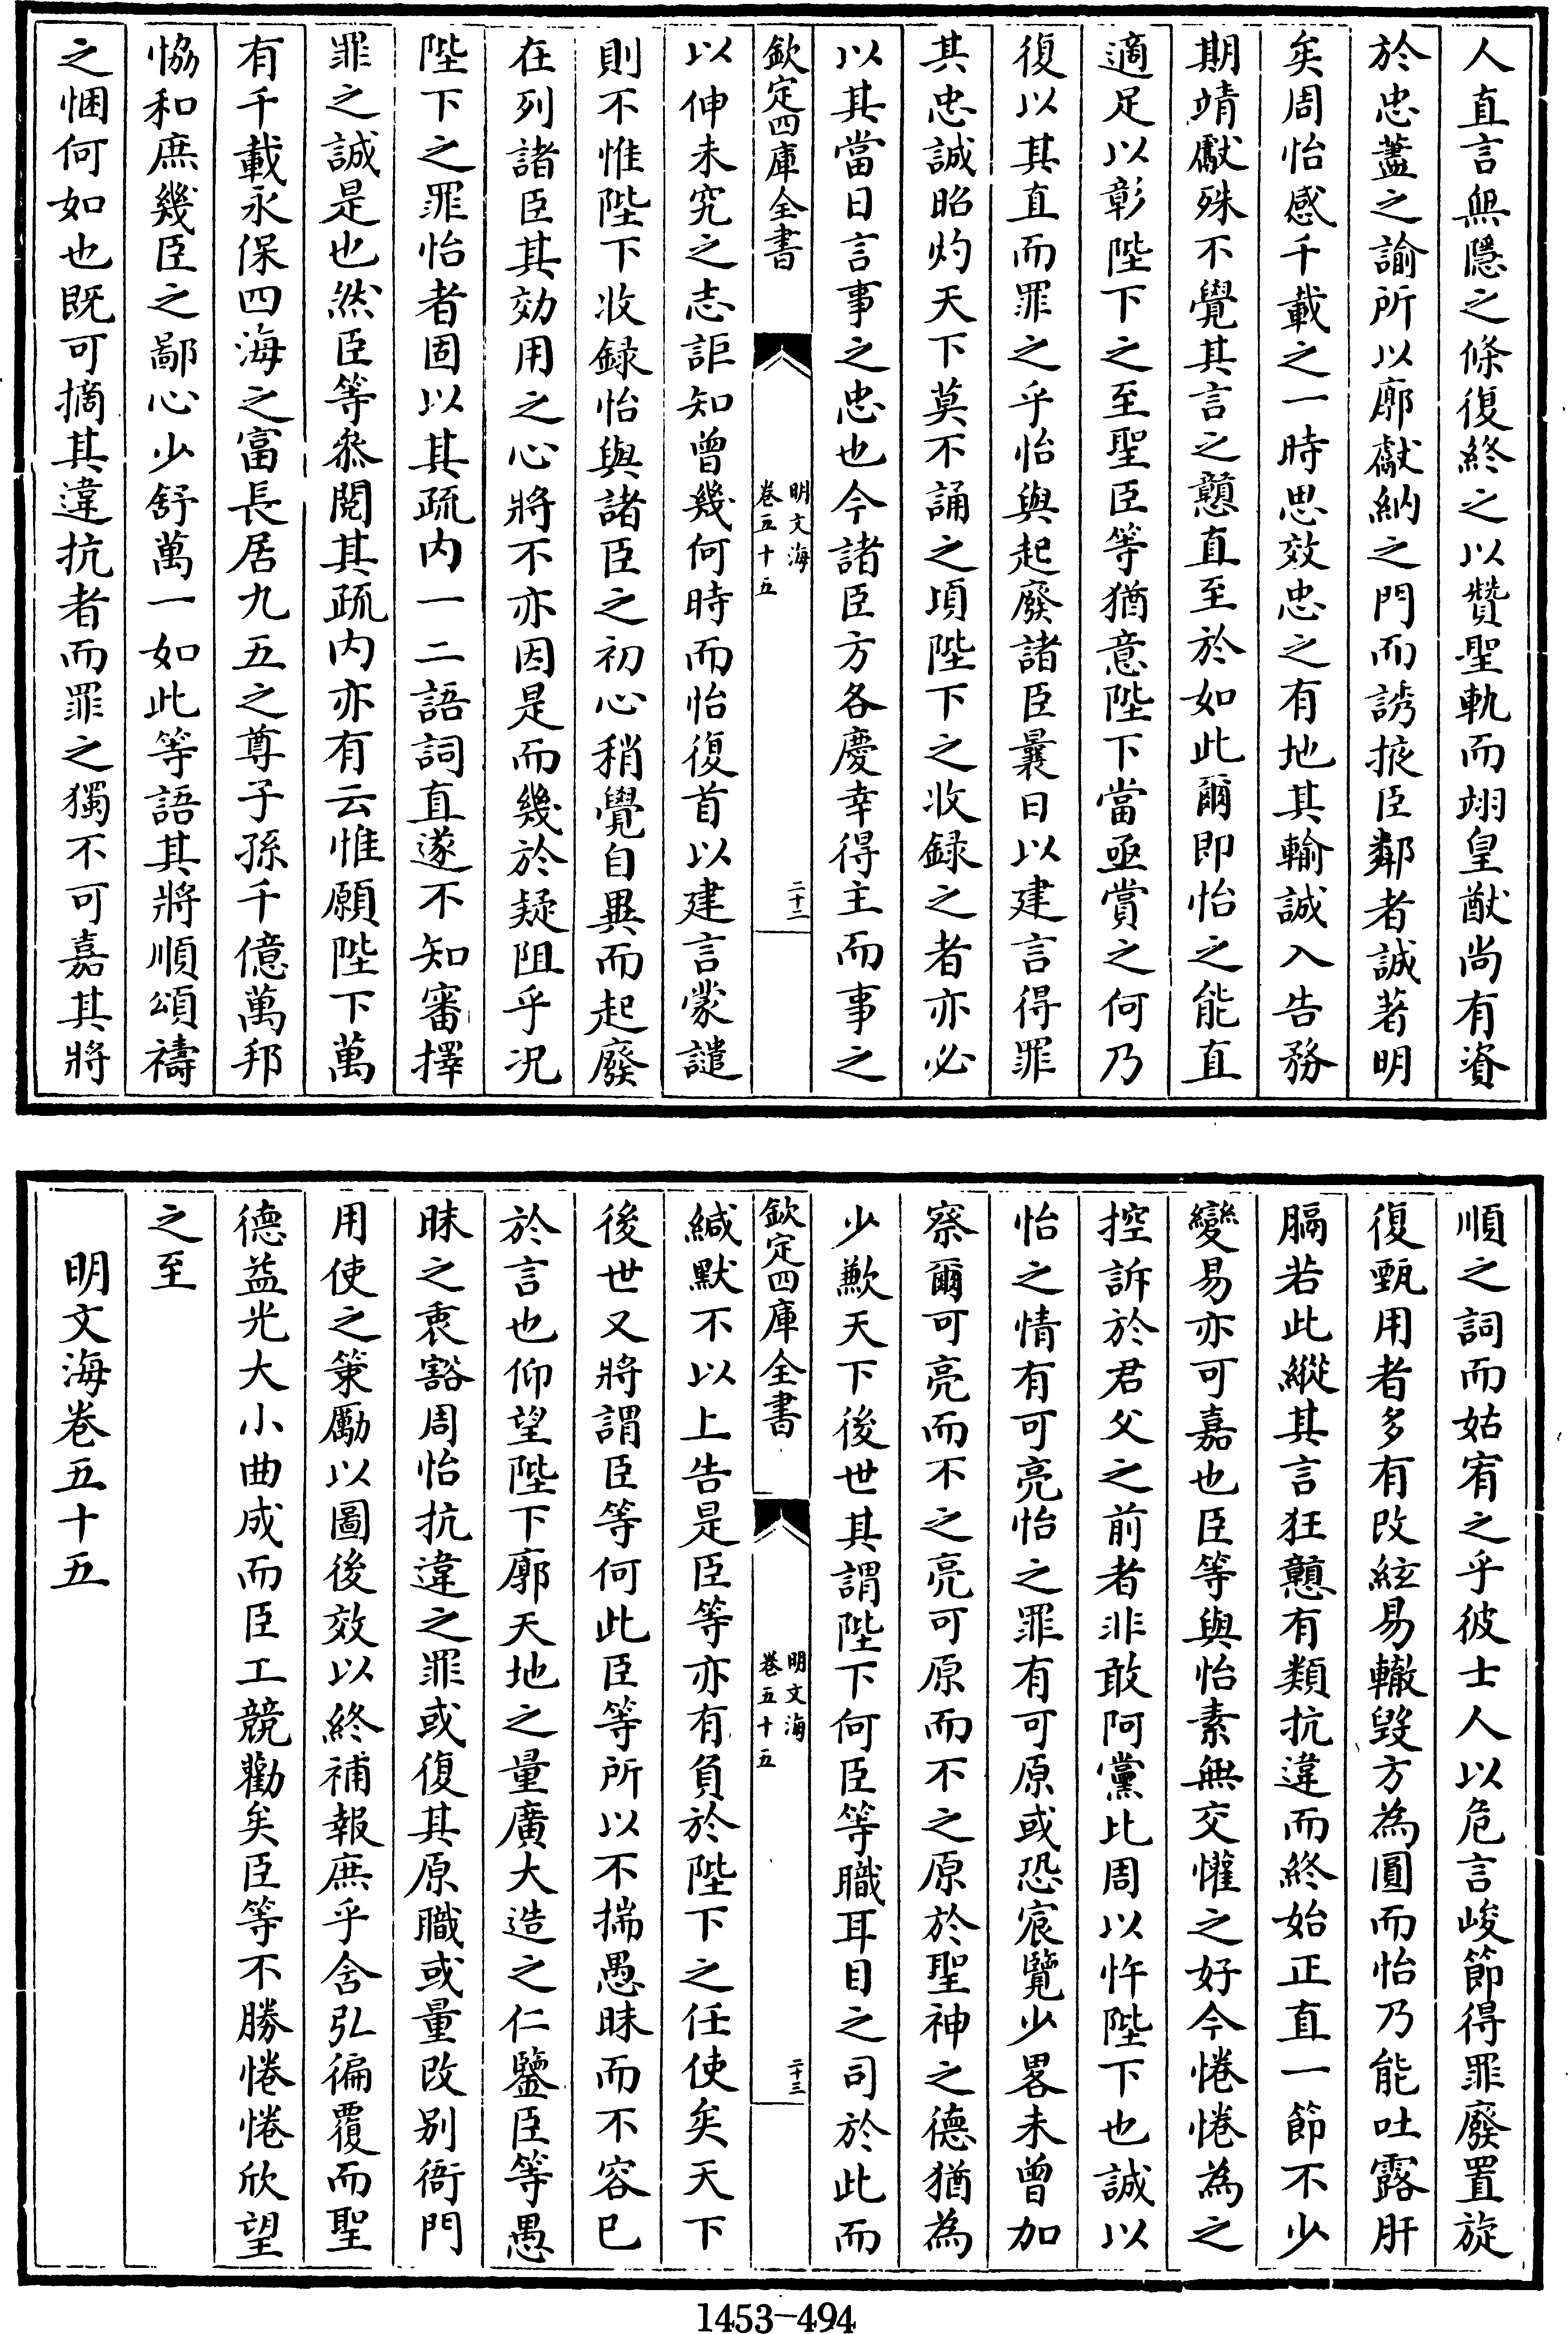 人直言無隱之條復終之以贊聖軌而翊皇猷尚有資
於忠藎之諭所以廓獻納之門而誘掖臣鄰者誠著明
矣周怡感千載之一時思效忠之有地其輸誠入告務
期靖獻殊不覺其言之戇直至於如此爾即怡之能直
適足以彰陛下之至聖臣等猶意陛下當亟賞之何乃
復以其直而罪之乎怡與起廢諸臣曩日以建言得罪
其忠誠昭灼天下莫不誦之頃陛下之收録之者亦必
以其當日言事之忠也今諸臣方各慶幸得主而事之
欽定四庫全書
明文海
卷五十五
二十二
以伸未究之志詎知曾幾何時而怡復首以建言蒙譴
則不惟陛下收録怡與諸臣之初心稍覺自異而起廢
在列諸臣其効用之心將不亦因是而幾於疑阻乎况
陛下之罪怡者固以其疏内一二語詞直遂不知審擇
罪之誠是也然臣等叅閱其疏内亦有云惟願陛下萬
有千載永保四海之富長居九五之尊子孫千億萬邦
恊和庶幾臣之鄙心少舒萬一如此等語其將順頌禱
之悃何如也既可摘其違抗者而罪之獨不可嘉其將
順之詞而姑宥之乎彼士人以危言峻節得罪廢置旋
復甄用者多有改絃易轍毀方為圓而怡乃能吐露肝
膈若此縱其言狂戇有類抗違而終始正直一節不少
變易亦可嘉也臣等與怡素無交懽之好今惓惓為之
控訴於君父之前者非敢阿黨比周以忤陛下也誠以
怡之情有可亮怡之罪有可原或恐宸覽少畧未曾加
察爾可亮而不之亮可原而不之原於聖神之德猶為
少歉天下後世其謂陛下何臣等職耳目之司於此而
欽定四庫全書
明文海
卷五十五
二十三
緘默不以上告是臣等亦有負於陛下之任使矣天下
後世又將謂臣等何此臣等所以不揣愚昧而不容已
於言也仰望陛下廓天地之量廣大造之仁鑒臣等愚
昧之衷豁周怡抗違之罪或復其原職或量改别衙門
用使之策勵以圖後效以終補報庶乎含弘徧覆而聖
德益光大小曲成而臣工競勸矣臣等不勝惓惓欣望
之至
明文海卷五十五
1453-494